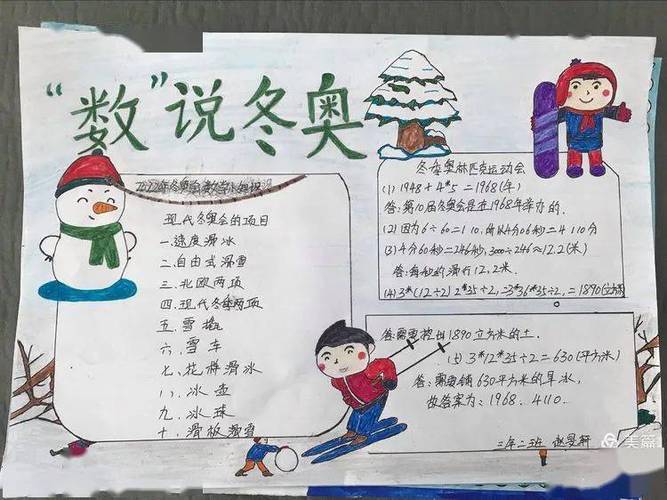 “数”说冬奥
2022年冬奥会数学小知识
现代冬奥会的项目
一.速度滑冰
二.自由式滑雪
三.北欧两项
四.现代冬季两项
五.雪橇
六.雪车
七.花样滑冰
八.冰壶
九.冰球
十.滑板滑雪
冬季奥林匹克运动会
(1) 1948+4*5=1968(年)
答:第10届冬奥会是在1968年举办的.
(2)因为6÷60=110,每以4分06秒=4 110分
(3)4分60秒=246秒,3000÷246≈12.2(米)
答:每秒约滑行12.2米.
(4)3*(12÷2)2*35÷2,=3*36*35÷2,=1890(立方
答:需要挖出1890立方米的土.
(5)3*12*35÷2=630(平方米)
答:需要铺630平方米的草冰,
故答案为:1968.4110.
二年二班
美篇